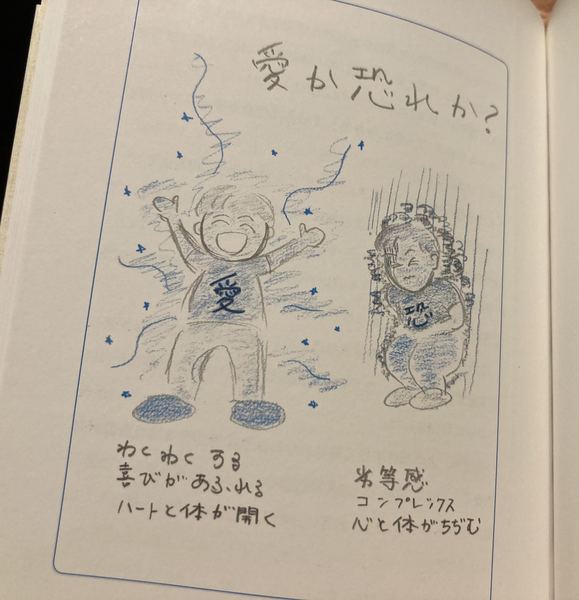 愛か恐れか?
愛
恐
わくわくする
喜びがあふれる
ハートと体が開く
劣等感
コンプレックス
心と体がちぢむ